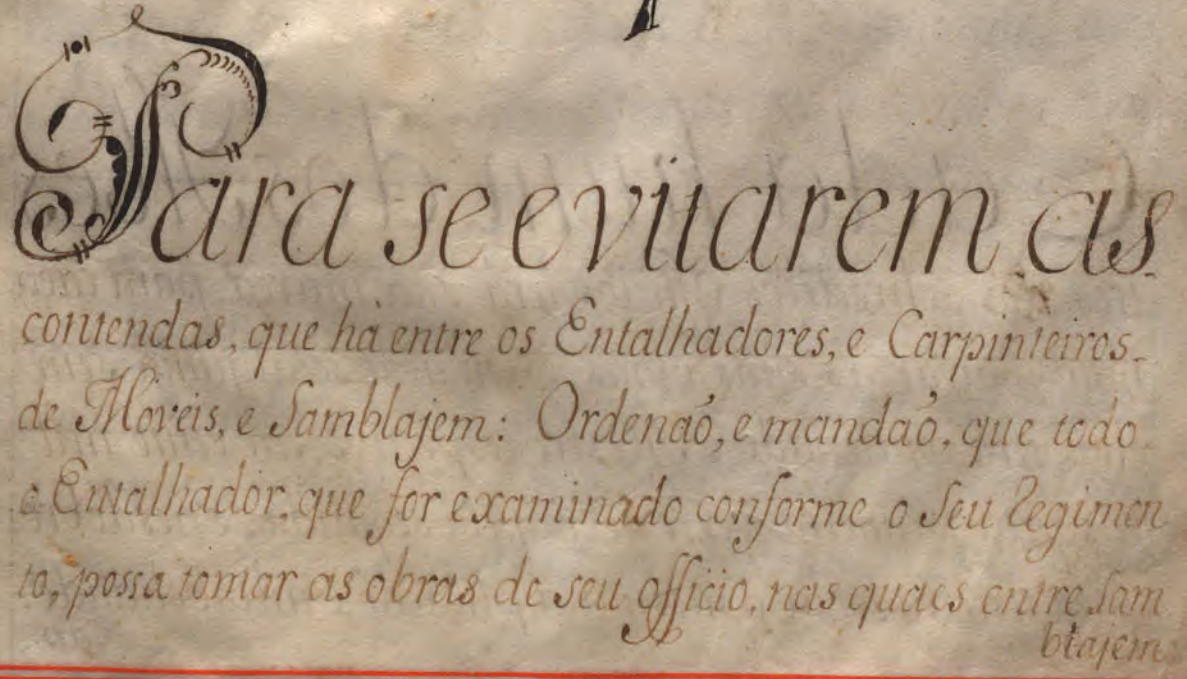 Para se evitarem as
contendas, que há entre os Entalhadores, e Carpinteiros
de Moveis, e Samblajem: Ordenaõ, e mandaõ, que todo
o Entalhador, que for examinado conforme o Seu Regimen
to, possa tomar as obras de seu officio, nas quaes entre Sam
blajem